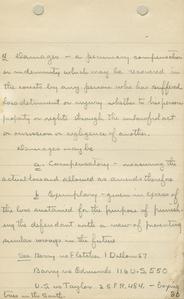 Damages - a pecuniary compensation
or indemnity which may be recovered in
the courts by any person who has suffered
loss detriment or injury whether to his person
property or rights through the unlawful act
or omission or negligence of another.
Damages may be
a - Compensatory - measuring the
actual loss and allowed as amends therefor
b Exemplary - given in excess of
the loss sustained for the purpose of punish
ing the defendant with a view of preventing
similar wrongs in the future
Barry vs Fletcher 1
Barry vs Edmunds 116 U.S. 550
U.S. vs Taylor 35 F.R. 484 -
trees in the South.